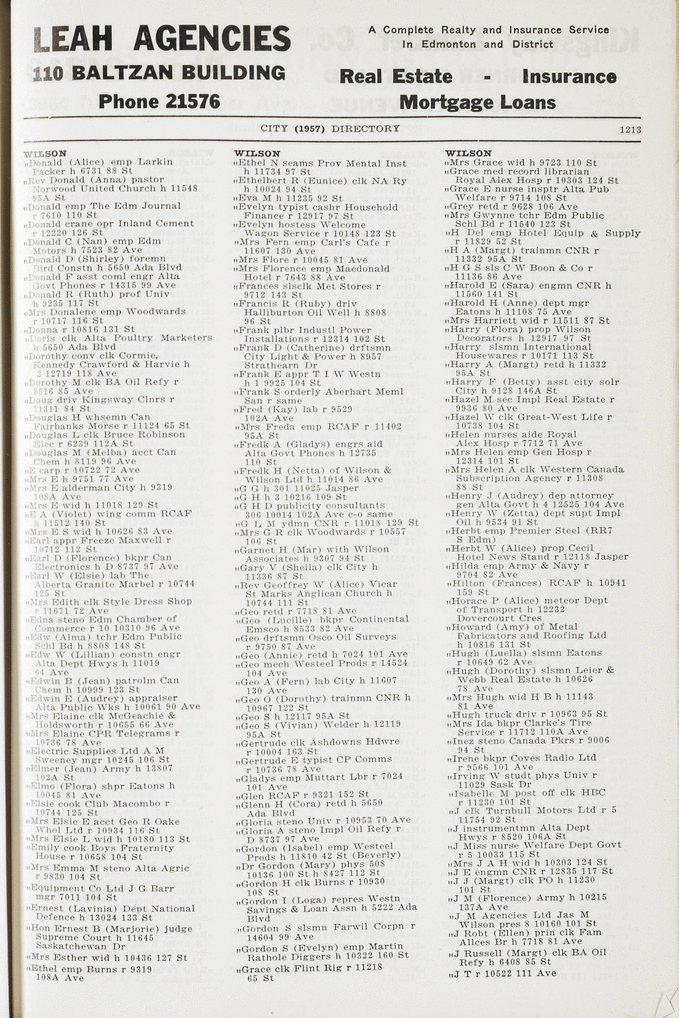 LEAH AGENCIES
110 BALTZAN BUILDING
Phone 21576
A Complete Realty and Insurance Service
In Edmonton and District
Real Estate - Insurance
Mortgage Loans
CITY (1957) DIRECTORY
1213
WILSON
„Donald (Alice) emp Larkin
Packer h 6731 88 St
„Rev Donald (Anna) pastor
Norwood United Church h 11548
95A St
„Donald emp The Edm Journal
r 7610 110 St
„Donald crane opr Inland Cement
r 12220 126 St
„Donald C (Nan) emp Edm
Motors h 7523 82 Ave
„Donald D (Shirley) foremn
Bird Constn h 5650 Ada Blvd
„Donald F asst coml engr Alta
Govt Phones r 14315 99 Ave
„Donald R (Ruth) prof Univ
h 9235 117 St
„Mrs Donalene emp Woodwards
r 10717 116 St
„Donna r 10816 131 St
„Doris clk Alta Poultry Marketers
h 5650 Ada Blvd
„Dorothy conv clk Cormie,
Kennedy Crawford & Harvie h
2 12719 118 Ave
„Dorothy M clk BA Oil Refy r
8516 85 Ave
„Doug driv Kingsway Clnrs r
11311 84 St
„Douglas H whsemn Can
Fairbanks Morse r 11124 65 St
„Douglas L clk Bruce Robinson
Elec r 6239 112A St
„Douglas M (Melba) acct Can
Chem h 8119 96 Ave
„E carp r 10722 72 Ave
„Mrs E h 9751 77 Ave
„Mrs E alderman City h 9319
108A Ave
„Mrs E wid h 11018 129 St
„E A (Violet) wing comm RCAF
h 11512 140 St
„Mrs E S wid h 10626 83 Ave
„Earl appr Freeze Maxwell r
10712 112 St
„Earl D (Florence) bkpr Can
Electronics h D 8737 97 Ave
„Earl W (Elsie) lab The
Alberta Granite Marbel r 10744
125 St
„Mrs Edith clk Style Dress Shop
r 11671 72 Ave
„Edna steno Edm Chamber of
Commerce r 10 10310 96 Ave
„Edw (Alma) tchr Edm Public
Schl Bd h 8808 148 St
„Edw W (Lillian) constn engr
Alta Dept Hwys h 11019
64 Ave
„Edwin B (Jean) patrolm Can
Chem h 10999 123 St
„Edwin E (Audrey) appraiser
Alta Public Wks h 10061 90 Ave
„Mrs Elaine clk McGeachie &
Holdsworth r 10655 66 Ave
„Mrs Elaine CPR Telegrams r
10736 78 Ave
„Electric Supplies Ltd A M
Sweeney mgr 10245 106 St
„Elmer (Jean) Army h 13807
102A St
„Elmo (Flora) shpr Eatons h
10045 81 Ave
„Elsie cook Club Macombo r
10744 125 St
„Mrs Elsie E acct Geo R Oake
Whol Ltd r 10934 116 St
„Mrs Elsie L wid h 10180 113 St
„Emily cook Boys Fraternity
House r 10658 104 St
„Mrs Emma M steno Alta Agric
r 9830 104 St
„Equipment Co Ltd J G Barr
mgr 7011 104 St
„Ernest (Lavinia) Dept National
Defence h 13024 133 St
„Hon Ernest B (Marjorie) judge
Supreme Court h 11645
Saskatchewan Dr
„Mrs Esther wid h 10436 127 St
„Ethel emp Burns r 9319
108A Ave
WILSON
„Ethel N seams Prov Mental Inst
h 11734 97 St
„Ethelbert R (Eunice) clk NA Ry
h 10024 94 St
„Eva M h 11235 92 St
„Evelyn typist cashr Household
Finance r 12917 97 St
„Evelyn hostess Welcome
Wagon Service r 10148 123 St
„Mrs Fern emp Carl's Cafe r
11607 130 Ave
„Mrs Flore r 10045 81 Ave
„Mrs Florence emp Macdonald
Hotel r 7643 88 Ave
„Frances slsclk Met Stores r
9712 143 St
„Francis R (Ruby) driv
Halliburton Oil Well h 8808
96 St
„Frank plbr Industl Power
Installations r 12314 102 St
„Frank D (Catherine) drftsmn
City Light & Power h 8957
Strathearn Dr
„Frank E appr T I W Westn
h 1 9925 104 St
„Frank S orderly Aberhart Meml
San r same
„Fred (Kay) lab r 9529
102A Ave
„Mrs Freda emp RCAF r 11402
95A St
„Fredk A (Gladys) engrs aid
Alta Govt Phones h 12735
110 St
„Fredk H (Netta) of Wilson &
Wilson Ltd h 11014 86 Ave
„G G h 301 11025 Jasper
„G H h 3 10216 109 St
„G H D publicity consultants
306 10014 102A Ave c-o same
„G L M ydmn CNR r 11018 129 St
„Mrs G R clk Woodwards r 10557
106 St
„Garnet H (Mar) with Wilson
Associates h 9307 94 St
„Gary V (Sheila) clk City h
11336 87 St
„Rev Geoffrey W (Alice) Vicar
St Marks Anglican Church h
10744 111 St
„Geo retd r 7718 81 Ave
„Geo (Lucille) bkpr Continental
Emsco h 8533 82 Ave
„Geo drftsmn Osco Oil Surveys
r 9750 87 Ave
„Geo (Annie) retd h 7024 101 Ave
„Geo mech Westeel Prods r 14524
104 Ave
„Geo A (Fern) lab City h 11607
130 Ave
„Geo O (Dorothy) trainmn CNR h
10967 122 St
„Geo S h 12117 95A St
„Geo S (Vivian) Welder h 12119
95A St
„Gertrude clk Ashdowns Hdwre
r 10004 163 St
„Gertrude E typist CP Comms
r 10736 78 Ave
„Gladys emp Muttart Lbr r 7024
101 Ave
„Glen RCAF r 9321 152 St
„Glenn H (Cora) retd h 5650
Ada Blvd
„Gloria steno Univ r 10953 70 Ave
„Gloria A steno Impl Oil Refy r
D 8737 97 Ave
„Gordon (Isabel) emp Westeel
Prods h 11810 42 St (Beverly)
„Dr Gordon (Mary) phys 508
10136 100 St h 8427 112 St
„Gordon H clk Burns r 10930
108 St
„Gordon I (Loga) repres Westn
Savings & Loan Assn h 5222 Ada
Blvd
„Gordon S slsmn Farwil Corpn r
14604 99 Ave
„Gordon S (Evelyn) emp Martin
Rathole Diggers h 10322 160 St
„Grace clk Flint Rig r 11218
65 St
WILSON
„Mrs Grace wid h 9723 110 St
„Grace med record librarian
Royal Alex Hosp r 10303 124 St
„Grace E nurse insptr Alta Pub
Welfare r 9714 108 St
„Grey retd r 9628 106 Ave
„Mrs Gwynne tchr Edm Public
Schl Bd r 11540 123 St
„H Del emp Hotel Equip & Supply
r 11829 52 St
„H A (Margt) trainmn CNR r
11332 95A St
„H G S sls C W Boon & Co r
11136 86 Ave
„Harold E (Sara) engmn CNR h
11560 141 St
„Harold H (Anne) dept mgr
Eatons h 11108 75 Ave
„Mrs Harriett wid r 11511 87 St
„Harry (Flora) prop Wilson
Decorators h 12917 97 St
„Harry slsmn International
Housewares r 10171 113 St
„Harry A (Margt) retd h 11332
95A St
„Harry F (Betty) asst city solr
City h 9128 146A St
„Hazel M sec Impl Real Estate r
9936 80 Ave
„Hazel W clk Great-West Life r
10738 104 St
„Helen nurses aide Royal
Alex Hosp r 7712 71 Ave
„Mrs Helen emp Gen Hosp r
12314 101 St
„Mrs Helen A clk Western Canada
Subscription Agency r 11308
88 St
„Henry J (Audrey) dep attorney
gen Alta Govt h 4 12525 104 Av
„Henry W (Zetta) dept supt Impl
Oil h 9534 91 St
„Herbt emp Premier Steel (RR7
S Edm)
„Herbt W (Alice) prop Cecil
Hotel News Stand r 12118 Jasper
„Hilda emp Army & Navy r
9704 82 Ave
„Hilton (Frances) RCAF h 10941
159 St
„Horace P (Alice) meteor Dept
of Transport h 12232
Dovercourt Cres
„Howard (Amy) of Metal
Fabricators and Roofing Ltd
h 10816 131 St
„Hugh (Luella) slsmn Eatons
r 10649 62 Ave
„Hugh (Dorothy) slsmn Leier &
Webb Real Estate h 10626
78 Ave
„Mrs Hugh wid H B h 11143
81 Ave
„Hugh truck driv r 10963 95 St
„Mrs Ida bkpr Clarke's Tire
Service r 11712 110A Ave
„Inez steno Canada Pkrs r 9006
94 St
„Irene bkpr Coves Radio Ltd
r 9566 101 Ave
„Irving W studt phys Univ r
11029 Sask Dr
„Isabelle M post off clk HBC
r 11230 101 St
„J clk Turnbull Motors Ltd r 5
11754 92 St
„J instrumentmn Alta Dept
Hwys r 8520 106A St
„J Miss nurse Welfare Dept Govt
r 5 10033 115 St
„Mrs J A H wid h 10303 124 St
„J E engmn CNR r 12835 117 St
„J J (Margt) clk PO h 11230
101 St
„J M (Florence) Army h 10215
137A Ave
„J M Agencies Ltd Jas M
Wilson pres 8 10160 101 St
„J Robt (Ellen) prin clk Fam
Allces Br h 7718 81 Av
„J Russell (Margt) clk BA Oil
Refy h 6408 85 St
„J T r 10522 111 Ave